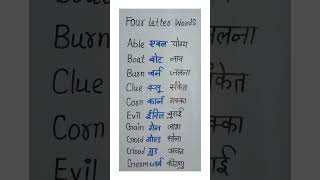 Four Letter Words
Able एबल योग्य
Boat बोट नाव
Burn बर्न जलना
Clue क्लू संकेत
Corn कार्न मक्का
Evil ईविल बुराई
Gain गेन लाभ
Gold गोल्ड सोना
Good गुड अच्छा
Germ जर्म कीटाणु